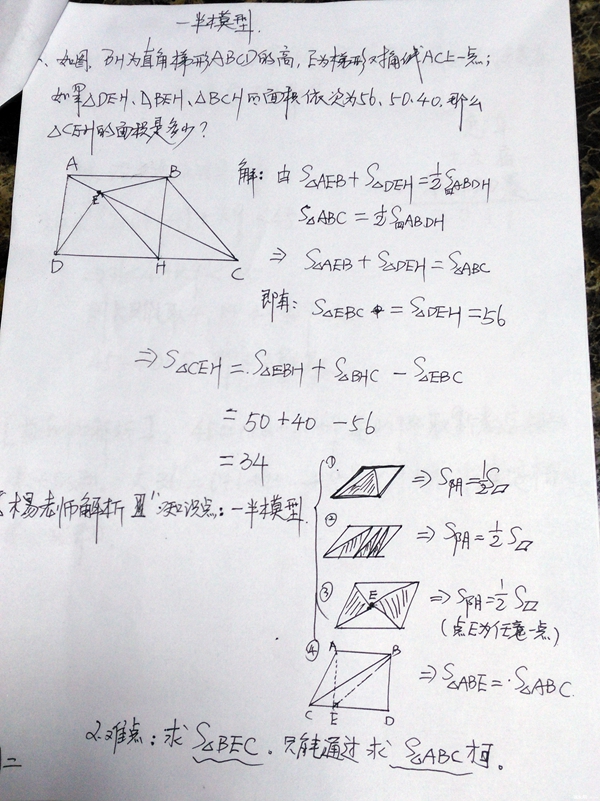 一半模型.
、如图,BH为直角梯形ABCD的高,E为梯形对角线AC上一点;
如果△DEH、△BEH、△BCH的面积依次为56、50、40.那么
△CEH的面积是多少?
A
B
E
D
H
C
解:由 S△AEB+S△DEH=1/2S▭ABDH
S△ABC=1/2S▭ABDH
⇒ S△AEB+S△DEH=S△ABC
即有: S△EBC=S△DEH=56
⇒S△CEH=.S△EBH+S△BHC-S△EBC
=50+40-56
=34
杨老师解析
知识点:一半模型.
①
⇒S阴=1/2S▱
②
⇒S阴=1/2S▱
③
E
⇒S阴=1/2S▱
(点E为任意一点)
④
A
B
C
E
D
⇒S△ABE=.S△ABC.
2.难点:求S△BEC.只能通过求S△ABC才可。